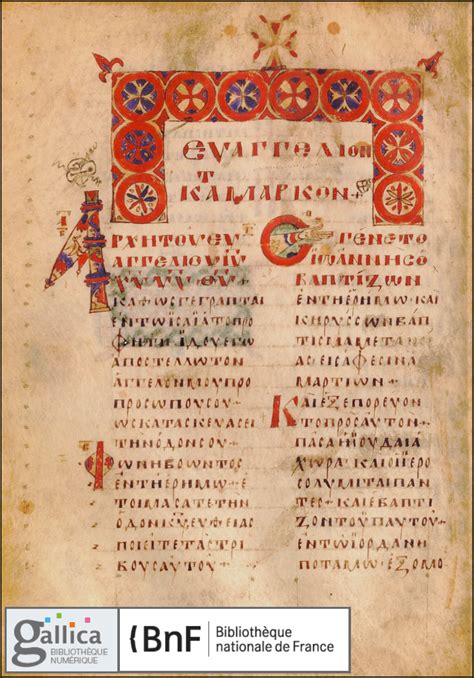 ΕΥΑΓΓΕΛΙΟΝ
Τ
ΚΑ ΜΑΡΚΟΝ+
ΑΡΧΗΤΟΥΕΥ
ΑΓΓΕΛΙΟΥΙΥ
ΧΥΥΥΘΥ
ΚΑΘΩϹΓΕΓΡΑΠΤΑΙ
ΕΝΤΩΙϹΑΙΑΤΟΠΡΟ
ΦΗΤΗΙΔΟΥΕΓΩ
ΑΠΟϹΤΕΛΛΩΤΟΝ
ΑΓΓΕΛΟΝΜΟΥΠΡΟ
ΠΡΟϹΩΠΟΥϹΟΥ
ΩϹΚΑΤΑϹΚΕΥΑϹΕΙ
ΤΗΝΟΔΟΝϹΟΥ
ΦΩΝΗΒΟΩΝΤΟϹ
ΕΝΤΗΕΡΗΜΩΕ
ΤΟΙΜΑϹΑΤΕΤΗΝ
ΟΔΟΝΚΥΕΥΘΕΙΑϹ
ΠΟΙΕΙΤΕΤΑϹΤΡΙ
ΒΟΥϹΑΥΤΟΥ
ΕΓΕΝΕΤΟ
ΙΩΑΝΝΗϹΟ
ΒΑΠΤΙΖΩΝ
ΕΝΤΗΕΡΗΜΩΚΑΙ
ΚΗΡΥϹϹΩΝΒΑΠ
ΤΙϹΜΑΜΕΤΑΝΟΙ
ΑϹΕΙϹΑΦΕϹΙΝΑ
ΜΑΡΤΙΩΝ
ΚΑΙΕΞΕΠΟΡΕΥΟΝ
ΤΟΠΡΟϹΑΥΤΟΝ
ΠΑϹΑΗΙΟΥΔΑΙΑ
ΧΩΡΑΚΑΙΟΙΙΕΡΟ
ϹΟΛΥΜΙΤΑΙΠΑΝ
ΤΕϹΚΑΙΕΒΑΠΤΙ
ΖΟΝΤΟΥΠΑΥΤΟΥ
ΕΝΤΩΙΟΡΔΑΝΗ
ΠΟΤΑΜΩΕΞΟΜΟ
gallica
BIBLIOTHÈQUE
NUMÉRIQUE
{BnF
Bibliothèque
nationale de France